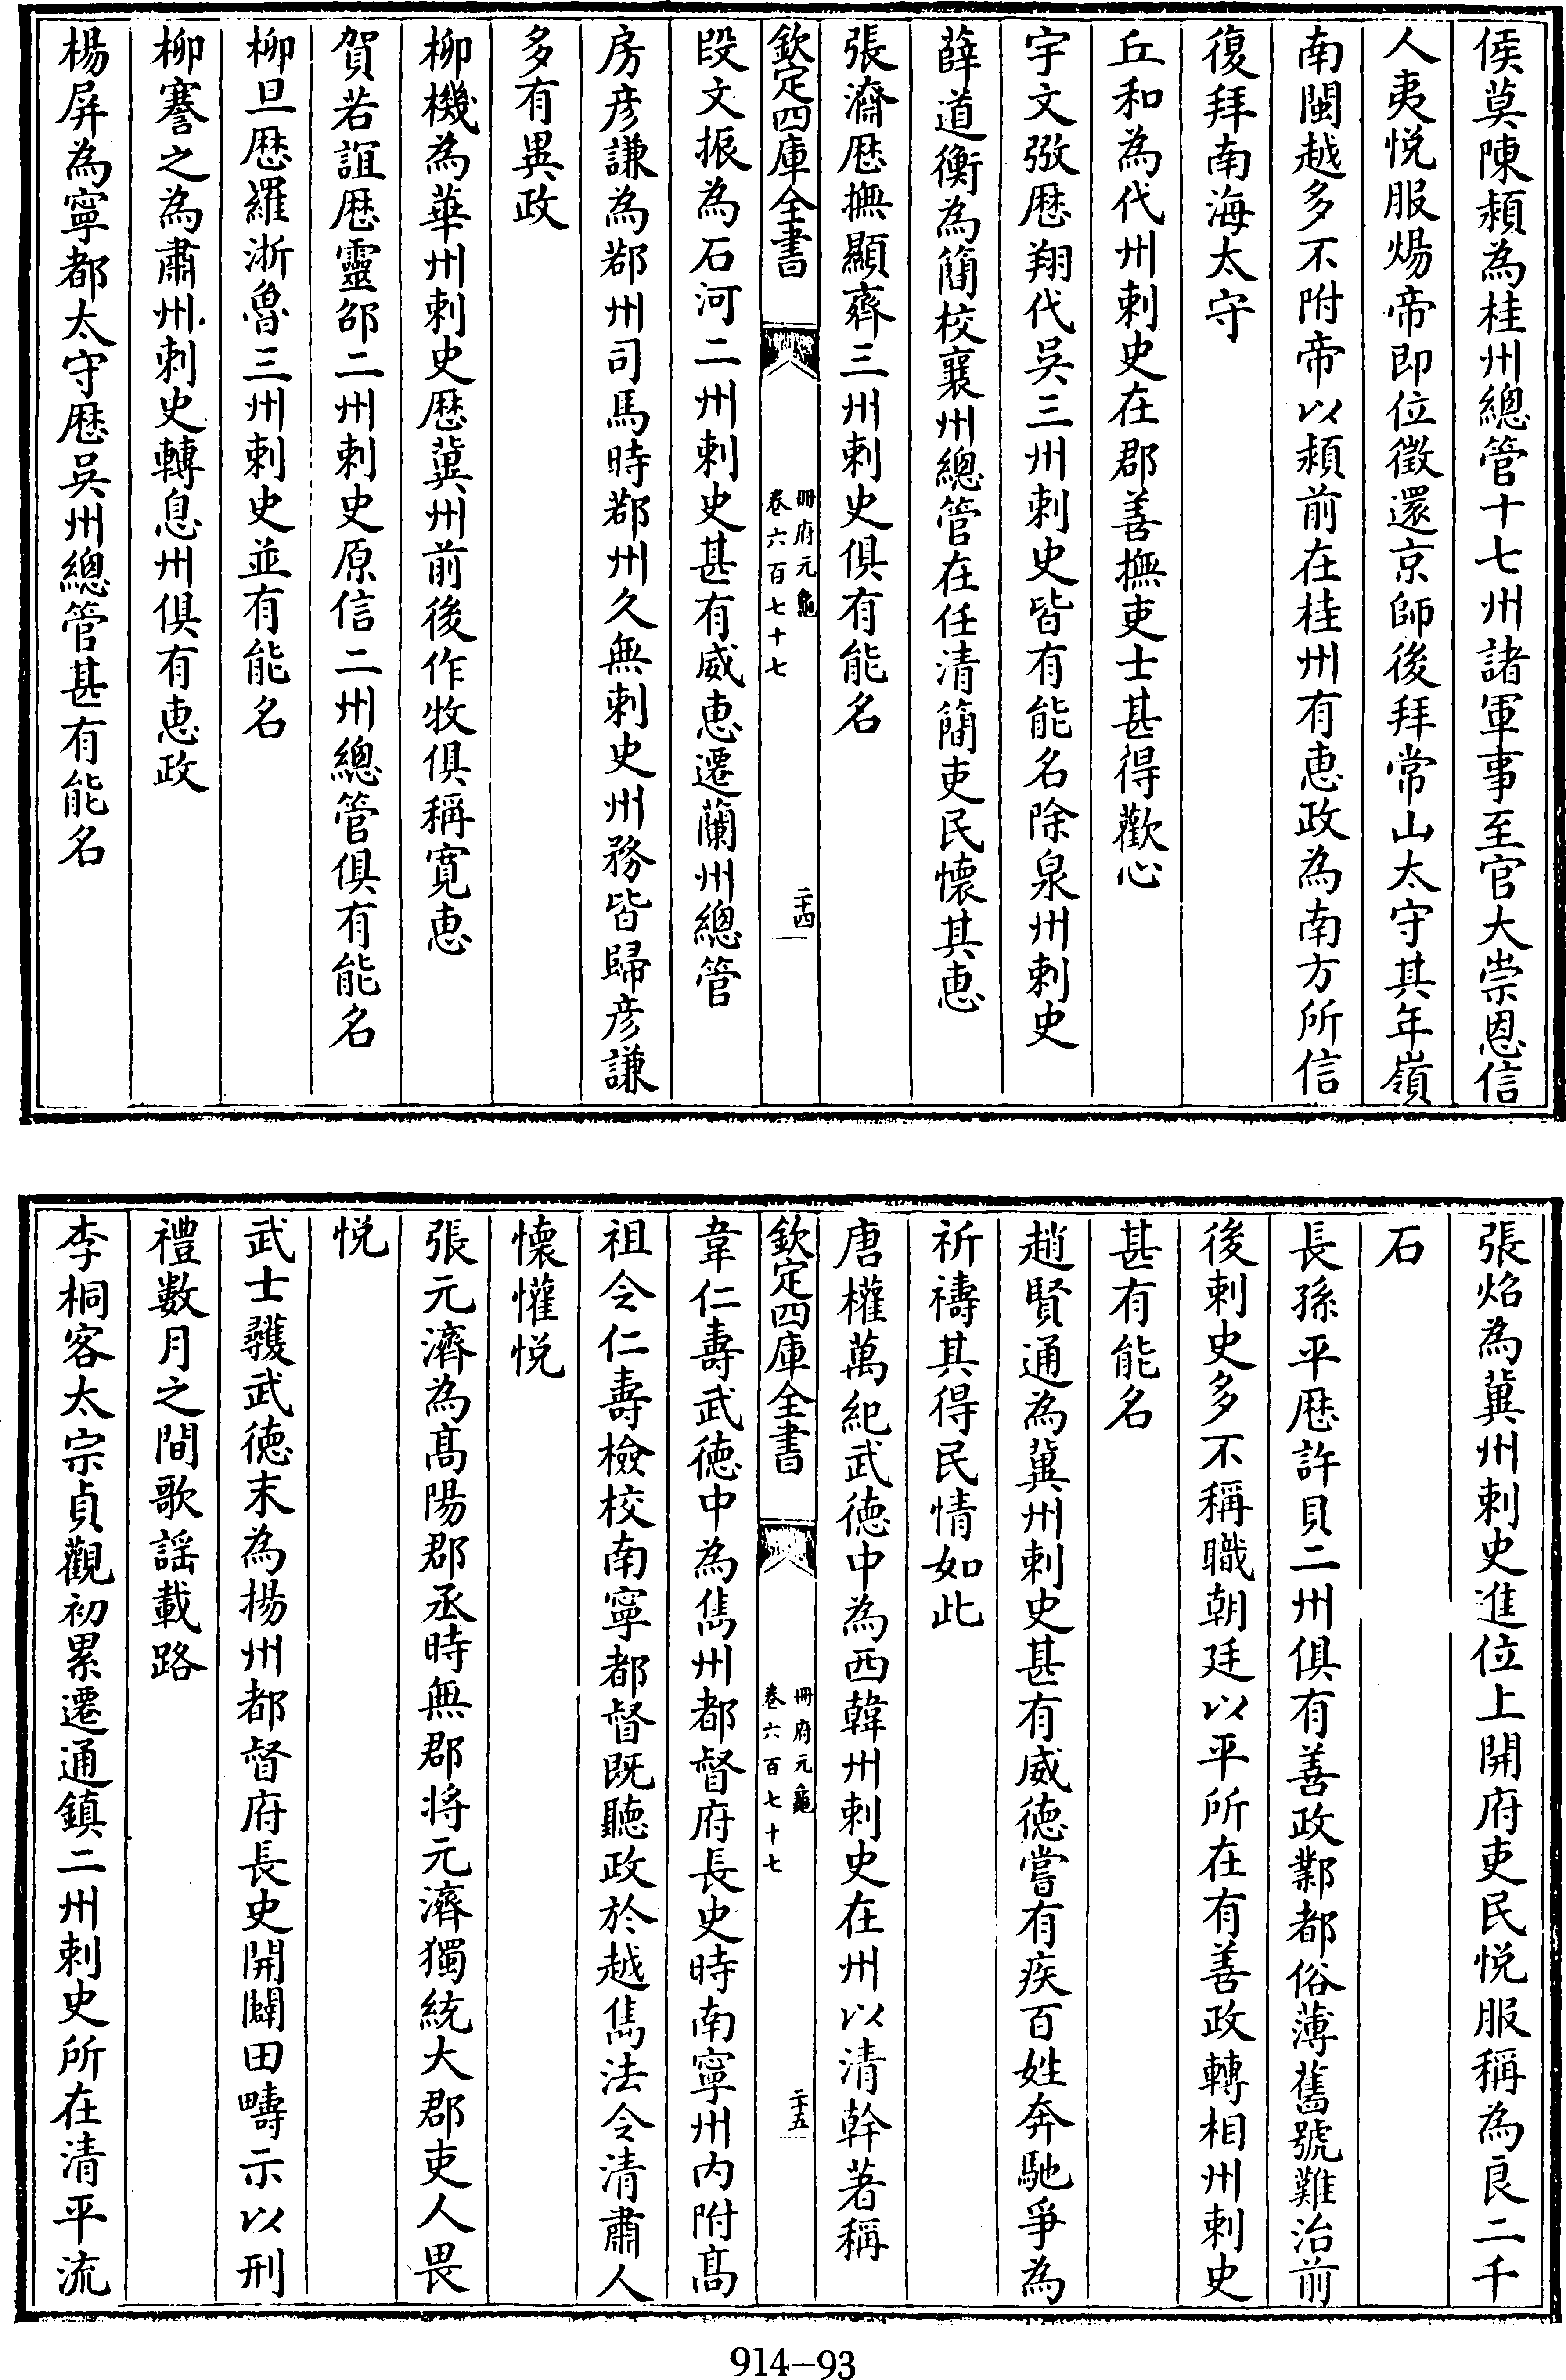 侯莫陳頴為桂州總管十七州諸軍事至官大崇恩信
人夷悦服煬帝即位徵還京師後拜常山太守其年嶺
南閩越多不附帝以頴前在桂州有恵政為南方所信
復拜南海太守
丘和為代州刺史在郡善撫吏士甚得歡心
宇文㢸歴翔代吳三州刺史皆有能名除泉州刺史
薛道衡為簡校襄州總管在任清簡吏民懷其恵
張濟歴撫顯齊三州刺史俱有能名
欽定四庫全書
冊府元龜
卷六百七十七
二十四
段文振為石河二州刺史甚有威恵遷蘭州總管
房彦謙為鄀州司馬時鄀州久無刺史州務皆歸彦謙
多有異政
柳機為華州刺史歴冀州前後作牧俱稱寛恵
賀若誼歴靈邵二州刺史原信二州總管俱有能名
柳旦歴羅淅魯三州刺史並有能名
柳謇之為肅州刺史轉息州俱有恵政
楊屏為寧都太守歴吳州總管甚有能名
張焰為冀州刺史進位上開府吏民悦服稱為良二千
石
長孫平歴許貝二州俱有善政鄴都俗薄舊號難治前
後刺史多不稱職朝廷以平所在有善政轉相州刺史
甚有能名
趙賢通為冀州刺史甚有威徳嘗有疾百姓奔馳爭為
祈禱其得民情如此
唐權萬紀武徳中為西韓州刺史在州以清幹著稱
欽定四庫全書
冊府元龜
卷六百七十七
二十五
韋仁壽武徳中為雋州都督府長史時南寧州内附髙
祖令仁壽檢校南寧都督既聽政於越雋法令清肅人
懷懽悦
張元濟為髙陽郡丞時無郡将元濟獨統大郡吏人畏
悦
武士彠武徳末為揚州都督府長史開闢田疇示以刑
禮數月之間歌謡載路
李桐客太宗貞觀初累遷通鎮二州刺史所在清平流
914-93